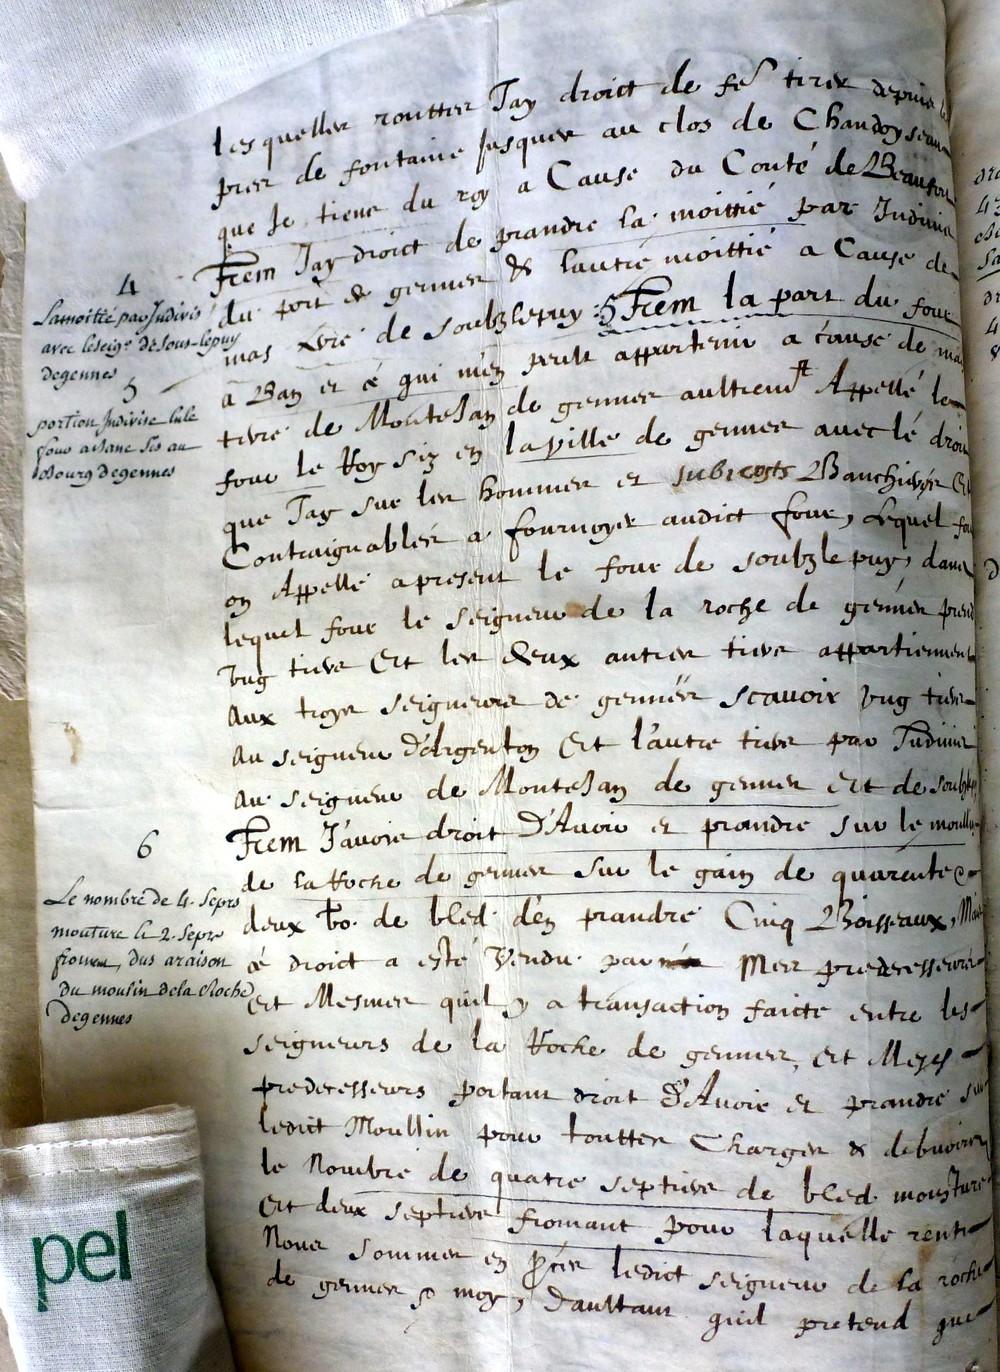 lesquelles routtes Jay droict de tirer depuis
prez de fontaine jusques au clos de Chandoyseau
que Je tiene du roy a Cause du Conté de Beaufort
Item Jay droict de prandre la moittié par Indivis
du port de gennes & lautre moittié a Cause de
mas de soubzlepuy 5 Item la part du four
a Ban et cé qui m'en peult appartenir a cause de ma
terre de Montesan de gennes aultrem.t Appellé le
four le Roy siz en la ville de gennes avec lé droit
que Jay sur les hommes et subiects Banchiers Et
Contraignables a fournoyer audict four, Lequel
on Appelle apresent le four de soubzlepuy, dans
lequel four le seigneur de la roche de gennes prend
ung tiers Et les deux autres tiers appartiennent
aux troys seigneurs de gennes scavoir ung tiers
au seigneur d'Argenton Et l'autre tiers par Indivis
au seigneur de Montesan de gennes Et de soubzlepuy
Item J'avois droit D'Avoir et prandre sur le moullin
de la Roche de gennes sur le gain de quarente &
deux bo. de bled d'en prandre Cinq Boisseaux, Mais
cé droict a esté Vendu par Mes predecesseurs
Et Mesmes quil y a transaction faicte entre les
seigneurs de la Roche de gennes, Et Mes
predecesseurs portant droit D'Avoir et prandre sur
ledict Moullin pour touttes Charges & debvoirs
le Nombre de quatre septiers de bled mousture
Et deux septiers fromant pour laquelle rente
Nous sommes en procés ledict seigneur de la roche
de gennes & moy, Daultant quil pretend que
4
La moitié par Indivis
avec le seig.r de Sous-lepuy
de gennes
5
portion Indivise
four a bane Sis au
Bourg de gennes
6
Le nombre de 4. Sept.rs
mouture & 2. Sept.rs
froment, dus a raison
du moulin de la Roche
de gennes
pel